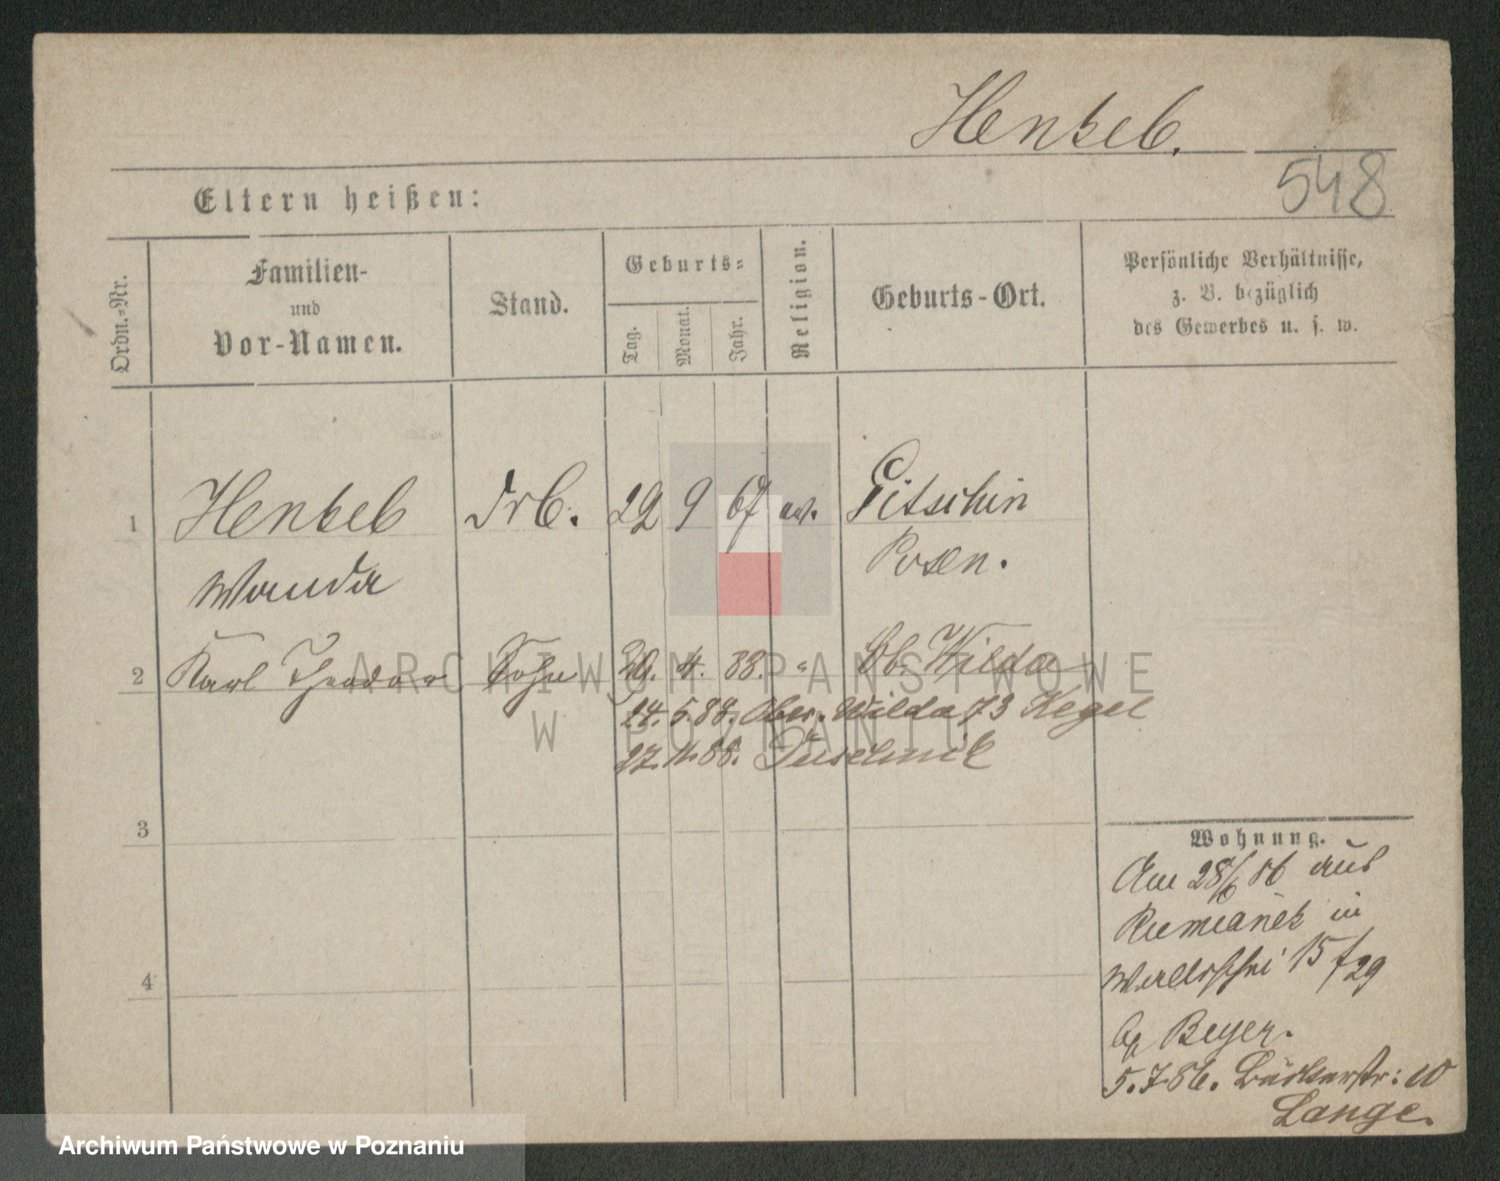 Henkel.
548
Eltern heißen:
Ordn.-Nr.
Familien-
und
Vor-Namen.
Stand.
Geburts-
Tag.
Monat.
Jahr.
Religion.
Geburts-Ort.
Persönliche Verhältnisse,
z. B. bezüglich
des Gewerbes u. s. w.
1 Henkel 29 9 67 ev. Pitschin
Wanda Posen.
2 Karl Theodor Sohn 30. 4. 88. " Ob. Wilda
24. 5. 88. Ober. Wilda 73 Kegel
27. 11. 88.
3
4
Wohnung.
Am 28/6 86 aus
in
15/29
Beyer.
5. 7. 86. Bäckerstr: 10
Lange.
ARCHIWUM PAŃSTWOWE
W POZNANIU
Archiwum Państwowe w Poznaniu